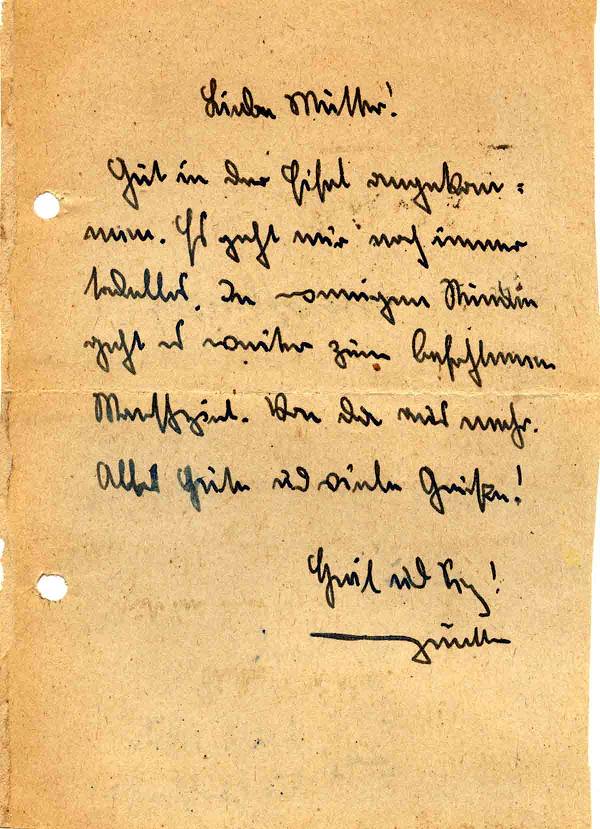 Liebe Mutter!
Gut in der Eifel angekom=
men. Es geht mir noch immer
tadellos. In wenigen Stunden
geht es weiter zum befohlenen
Marschziel. Von da aus mehr.
Alles Gute und viele Grüße!
Heil und Sieg!
Günter